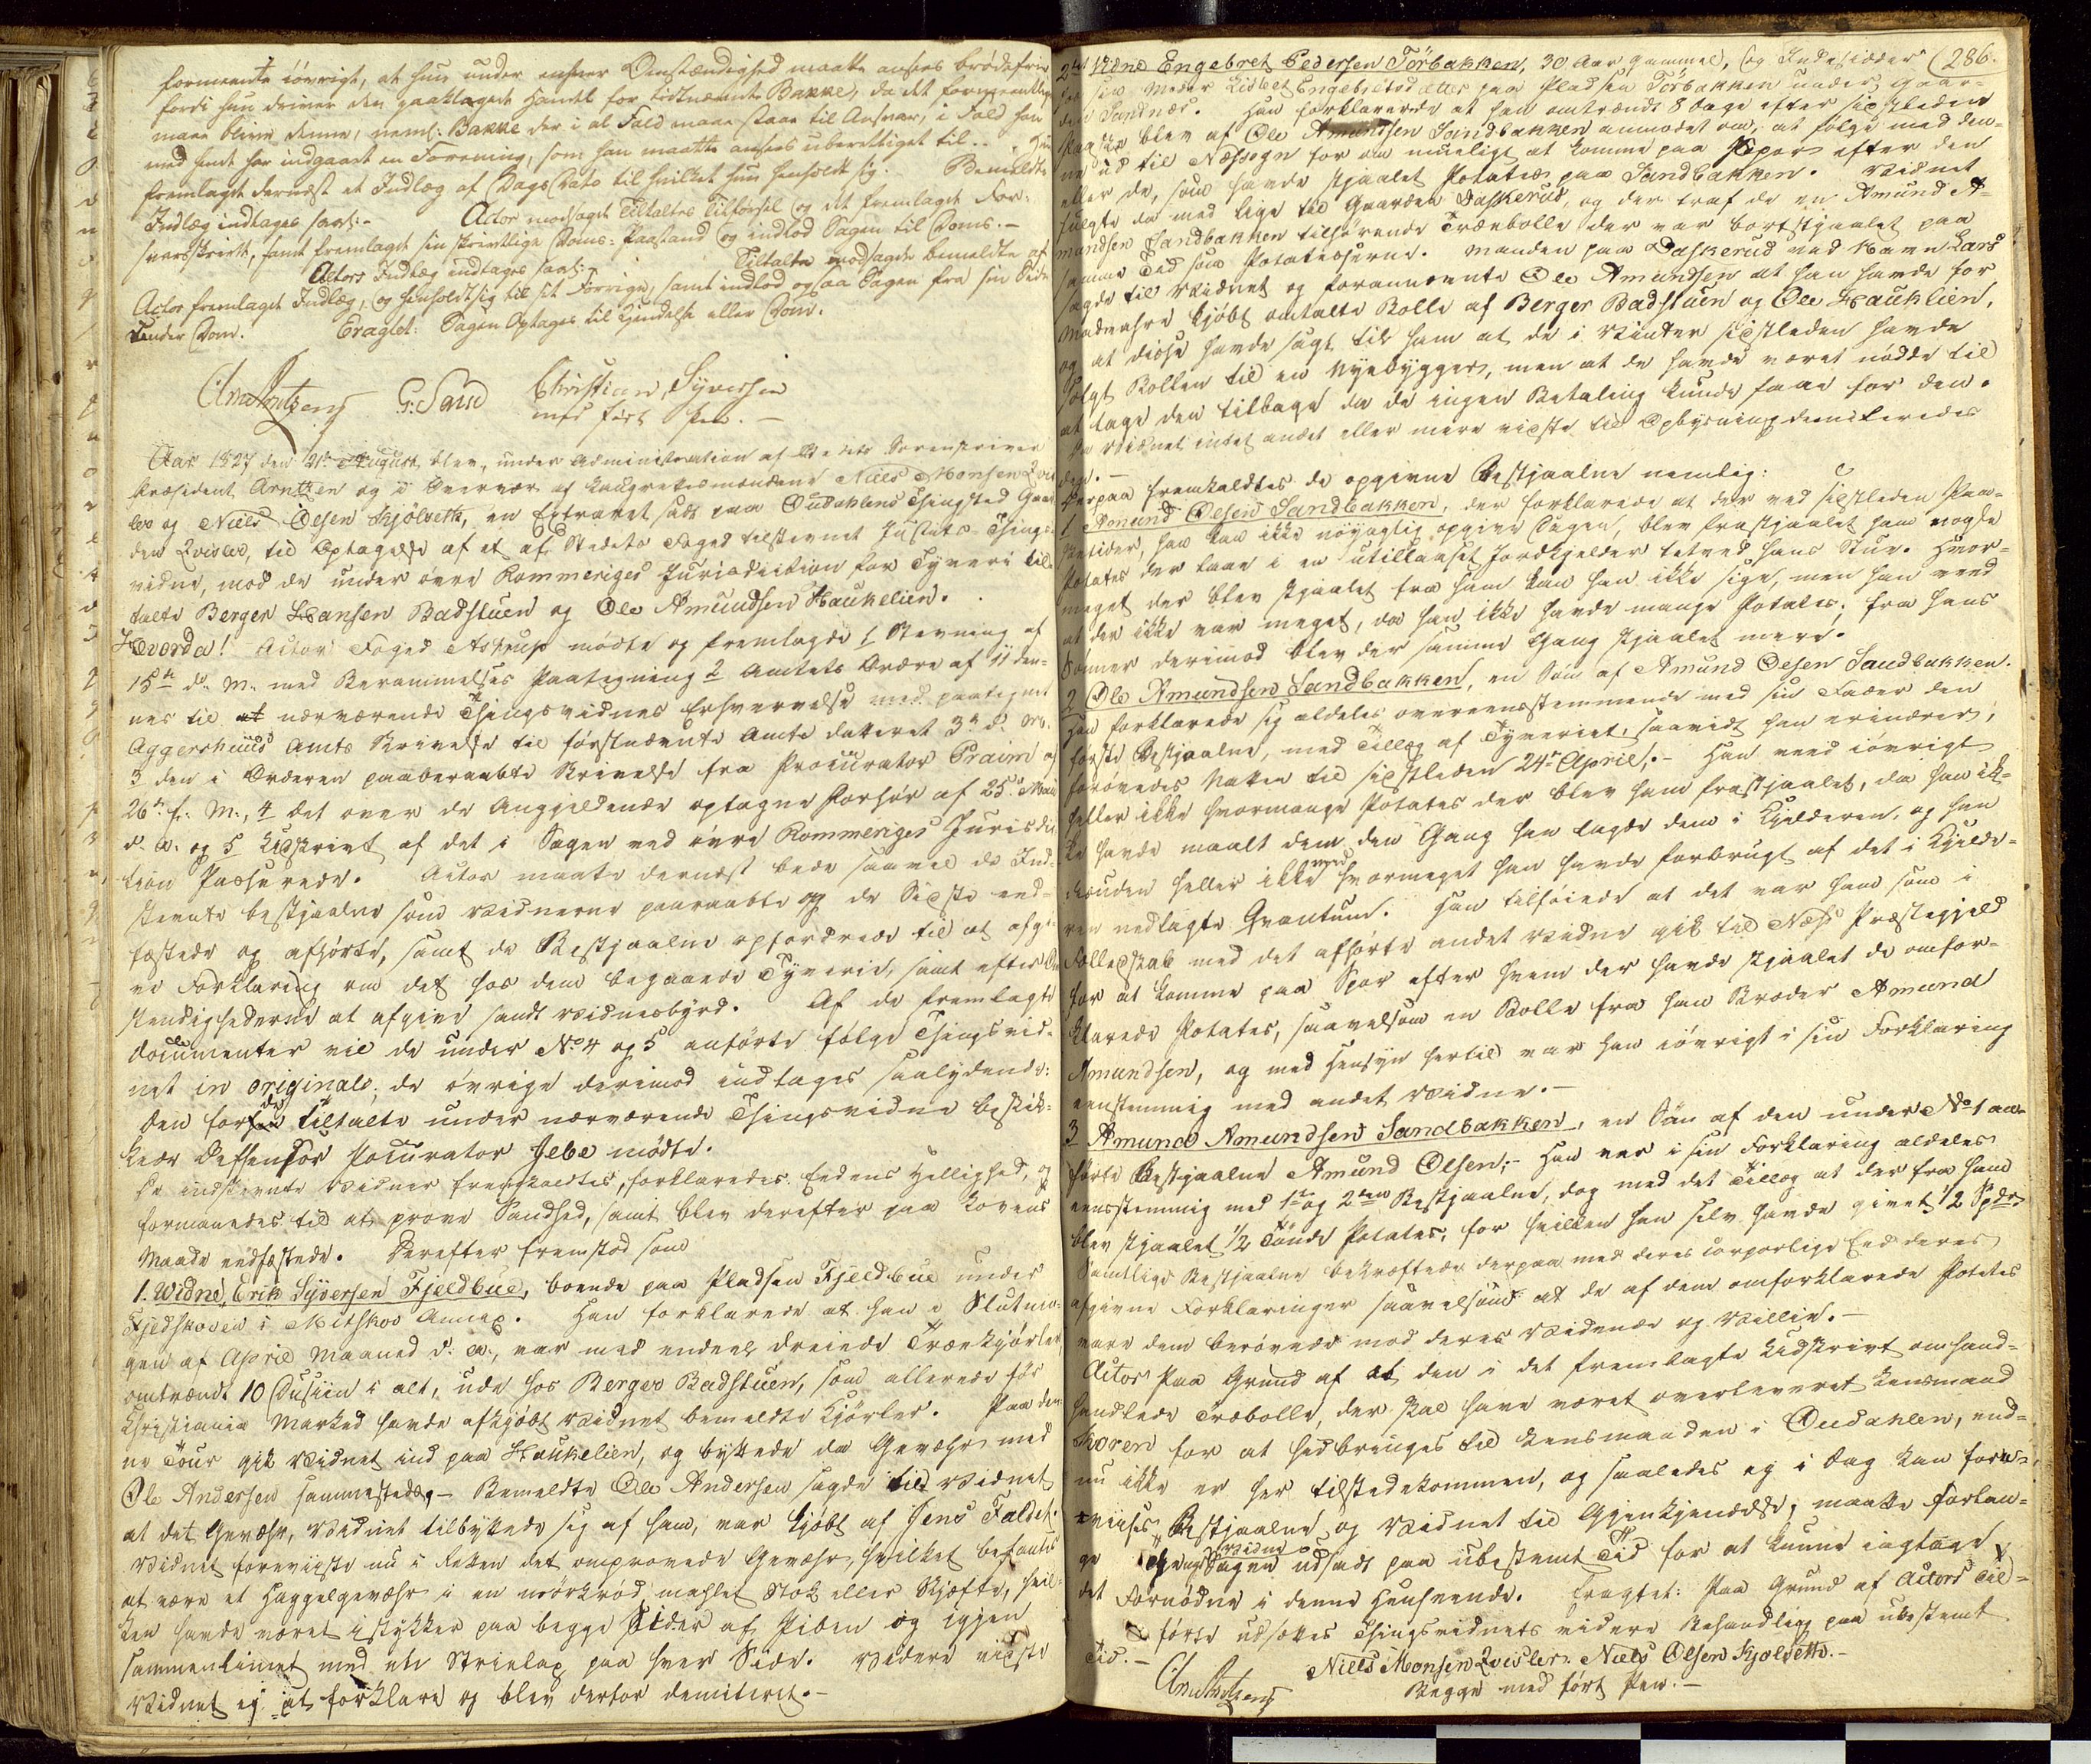 formeente iövrigt, at hun under enhver Omstændighed maatte ansees brödefrie
fordi hun driver den paaklagede Handel for sidtnævnte Bakke, da det formeentlig
maae blive denne, neml: Bakke der i al Fald maae staae til Ansvar, i Fald han
med hende har indgaaet en Forening, som han maatte ansees uberettiget til. Hun
fremlagde dernæst et Indlæg af Dags Dato til hvilket hun henholdt sig. Bemeldte
Indlæg indtages saal:- Actor modsagde Tiltaltes Tilförsel og det fremlagde For-
svarsskrivt, samt fremlagde sin skrivtlige Doms-Paastand og indlod Sagen til Doms.-
Actors Indlæg indtages saal: Tiltalte modsagde bemeldte af
Actor fremlagde Indlæg, og henholdt sig til sit Forrige, samt indlod ogsaa Sagen fra sin Side
under Dom. Eragtet: Sagen Optages til Kjendelse eller Dom.
Arntzen G: Sand Christian Syversen
med fört Pen.-
Aar 1827 den 21de August, blev, under Administration af Stedets Sorenskriver
Præsident Arntzen og i Overvær af Laugrettesmændene Niels Monsen Qvis-
ler og Niels Olsen Kjölseth, en Extraret sadt paa Oudahlens Thingsted Gaar-
den Qvisler, til Optagelse af et af Stedets Foged tilstevnet Justits-Things-
vidne, mod de under övre Rommeriges Jurisdiction for Tyveri til-
talte Berger Hansen Badstuen og Ole Amundsen Haukelien.
Hvorda! Actor Foged Astrup mödte og fremlagde 1 Stevning af
15de ds. M. med Berammelses Paategning 2 Amtets Ordre af 11 den-
nes til at nærværende Thingsvidnes Erhvervelse med paategnet
Aggershuus Amts Skrivelse til förstnævnte Amt dateret 3de d. M.
3 den i Orderen paaberaabte Skrivelse fra Procurator Praim af
26de f. M., 4 det over de Angjeldende optagne Forhör af 25de Mai
d. A. og 5 Udskrivt af det i Sagen ved övre Rommeriges Jurisdic-
tion Passerede. Actor maatte dernæst bede saavel de Ind-
stevnte bestjaalne som Vidnerne paaraabte og de Sidste eed-
fæstede og afhörte, samt de Bestjaalne opfordrede til at afgi-
ve Forklaring om det hos dem begaaede Tyverie, samt efter Om-
stændighederne at afgive sandt Vidnesbyrd. Af de fremlagte
Documenter vil de under No 4 og 5 anförte fölge Thingsvid-
net in originale; de övrige derimod indtages saalydende:
Den for de Tiltalte under nærværende Thingsvidne beskik-
kede Deffensor Pocurator Jebe mödte.
De indstevnte Vidner fremkaldtes, forklaredes Eedens Hellighed, og
formanedes til at prove Sandhed, samt blev derefter paa Lovens
Maade eedfæstede. Derefter fremstod som
1. Vidne, Erik Syversen Fjeldbue, boende paa Pladsen Fjeldbue under
Fjeldskoven i Mitskov Annex. Han forklarede at han i Slutnin-
gen af April Maaned d. A., var med endeel dreiede Trækjörler
omtrendt 10 Dusiin i alt, ude hos Berger Badstuen, som allerede för
Christiania Marked havde afkjöbt Vidnet bemeldte Kjörler. Paa den-
ne Tour gik Vidnet ind paa Haukelien, og byttede da Gevæhr med
Ole Andersen sammesteds,- Bemeldte Ole Andersen sagde til Vidnet
at det Gevæhr, Vidnet tilbyttede sig af ham, var kjöbt af Jens Faldet.
Vidnet foreviiste nu i Retten det omprovede Gevæhr, hvilket befantes
at være et Haggelgevæhr i en mörkröd mahlet Stok eller Skjefte, hvil-
ken havde været istykker paa begge Sider af Piben og igjen
sammenlimet med et Strielap paa hver Side. Videre vidste
Vidnet ej at forklare og blev derfor demiteret.-
286.
2det Vidne Engebret Pedersen Törbakken, 30 Aar gammel, og Indesidder
hos sin Moder Lisbet Engebretsdatter paa Pladsen Törbakken under Gaar-
den Sandnæs. Han forklarede at han omtrendt 8 Dage efter sidstleden
Paaske blev af Ole Amundsen Sandbakken anmodet om, at fölge med den-
ne ud til Næssogn for om mueligt at komme paa Spor efter den
eller de, som havde stjaalet Potates paa Sandbakken. Vidnet
fulgte da med lige til Gaarden Daskerud, og der traf de en Amund A-
mundsen Sandbakken tilhörende Træebolle der var bortstjaalet paa
samme Tid som Potateserne. Manden paa Daskerud ved Navn Lars
sagde til Vidnet og forannævnte Ole Amundsen at han havde for
Madvahre kjöbt omtalte Bolle af Berger Badstuen og Ole Hauklien,
og at disse havde sagt til ham at de i Vinter sidstleden havde
solgt Bollen til en Nyebygger, men at de havde været nödde til
at tage den tilbage da de ingen Betaling kunde faae for den.
Da Vidnet intet andet eller mere vidste til Oplysning demitteredes
den.-
Derpaa fremkaldtes de opgivne Bestjaalne nemlig:
1 Amund Olsen Sandbakken, der forklarede at der ved sidstleden Paa-
sketider, han kan ikke nöyagtig opgive Dagen, blev frastjaalet ham nogle
Potates der laae i en utillaaset Jordkjelder tetved hans Stue. Hvor-
meget der blev stjaalet fra ham kan han ikke sige, men han veed
at der ikke var meget, da han ikke havde mange Potates; fra hans
Sönner derimod blev der samme Gang stjaalet mere.
2 Ole Amundsen Sandbakken, en Sön af Amund Olsen Sandbakken.
Han forklarede sig aldeles overeensstemmende med sin Fader den
förste Bestjaalne, med Tillæg af Tyveriet, saavidt han erindrer,
forövedes Natten til sidstleden 24de April;- Han veed iövrigt
heller ikke hvormange Potates der blev ham frastjaalet, da han ik-
ke havde maalt dem den Gang han lagde dem i Kjelderen, og han
desuden heller ikke veed hvormeget han havde forbrugt af det i Kjelde-
ren nedlagte Qvantum. Han tilföiede at det var ham som i
Fælledskab med det afhörte andet Vidne gik til Næss Præstegjeld
for at komme paa Spor efter hvem der havde stjaalet de omfor-
klarede Potates, saavelsom en Bolle fra hans Broder Amund
Amundsen, og med Hensyn hertil var han iövrigt i sin Forklaring
eenstemmig med andet Vidne.-
3 Amund Amundsen Sandbakken, en Sön af den under No 1 an-
förte Bestjaalne Amund Olsen;- Han var i sin Forklaring aldeles
eensstemmig med 1ste og 2den Bestjaalne, dog med det Tillæg at der fra ham
blev stjaalet 1/2 Tönde Potates, for hvilken han selv havde givet 1/2 Spdr.
Samtlige Bestjaalne bekræftede derpaa med deres corporlige Eed deres
afgivne Forklaringer saavelsom at de af dem omforklarede Potates
vare dem berövede mod deres Vidende og Villie.-
Actor Paa Grund af at den i det fremlagte Udskrivt omhand-
handlede Træbolle, der skal have været overleveret Lensmand
Horen for at hidbringes til Lensmanden i Oudahlen, end-
nu ikke er her tilstedekommen, og saaledes ej i Dag kan fore-
viises Bestjaalne og Vidnet til Gjenkjendelse, maatte forlan-
ge Thingsvidne Sagen udsadt paa ubestemt Tid for at kunne iagtage
det Fornödne i denne Henseende. Eragtet: Paa Grund af Actors Til-
förte udsættes Thingsvidnets videre Behandling paa ubestemt
Tid.-
Arntzen Niels Monsen Qvisler. Niels Olsen Kjolseth.-
Begge med fört Pen.-